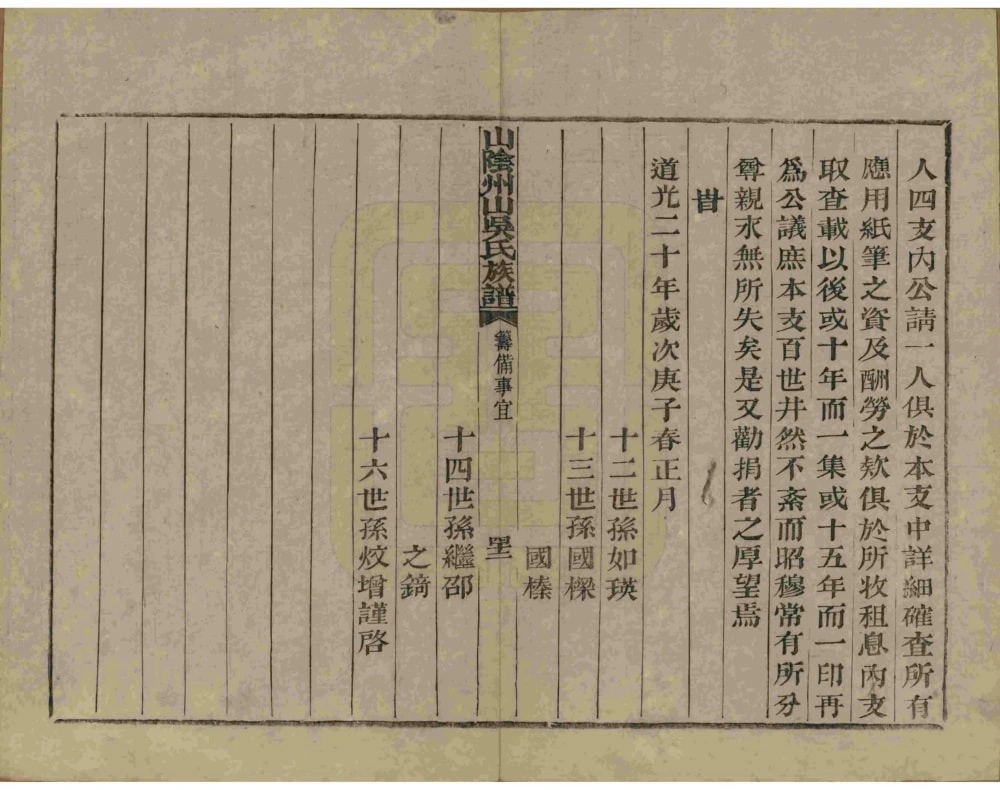 人四支內公請一人俱於本支中詳細確查所有
應用紙筆之資及酬勞之欵俱於所收租息內支
取查載以後或十年而一集或十五年而一印再
爲公議庶本支百世井然不紊而昭穆常有所分
尊親永無所失矣是又勸捐者之厚望焉
旹
道光二十年歲次庚子春正月
十二世孫如瑛
十三世孫國樑
國榛
山陰州山吳氏族譜
籌備事宜
十四世孫繼邵
之錡
十六世孫炆增謹啓